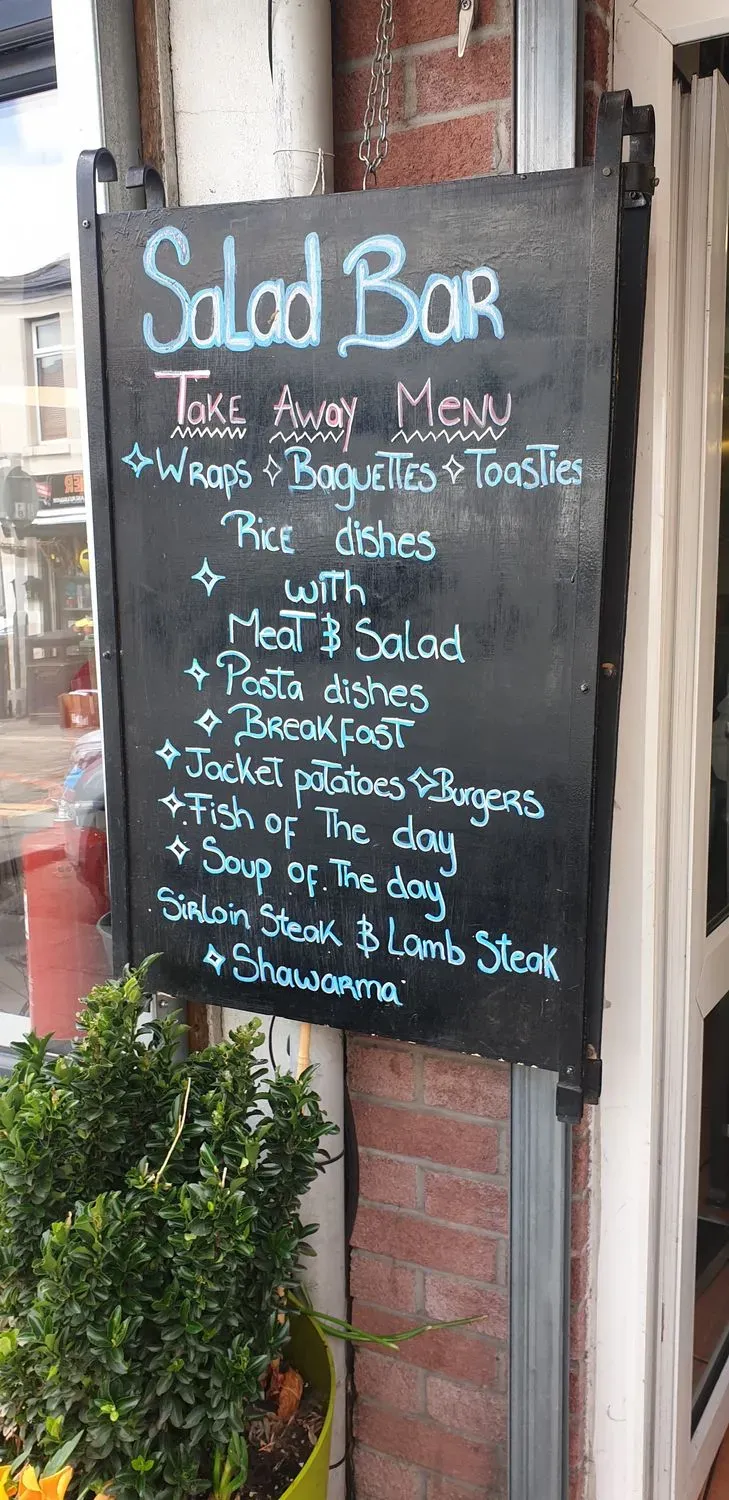 Salad Bar
Take Away Menu
Wraps Baguettes Toasties
Rice dishes
with
Meat & Salad
Pasta dishes
Breakfast
Jacket potatoes Burgers
Fish of The day
Soup of The day
Sirloin Steak & Lamb Steak
Shawarma